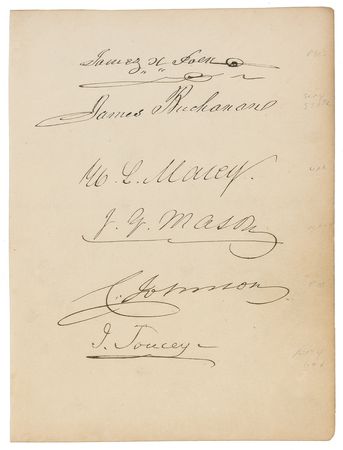 James K Polk
James Buchanan
W. L. Marcy.
J. Y. Mason
C. Johnson
I. Toucey